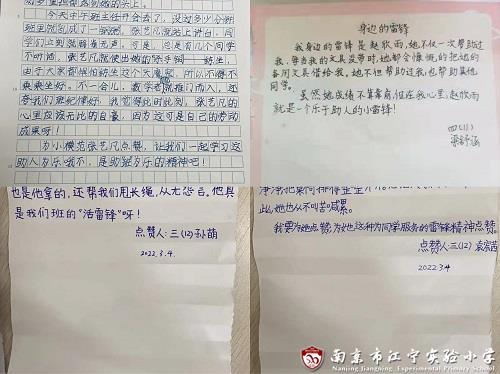 今天中午班主任开会去了，没过多少分钟
班里就乱成了一锅粥，张艺凡就站上讲台，同
学们立刻就鸦雀无声，可是，总是有几个同学
由于大家都很怕蚂蚱这个大魔鬼，所以不得不
乖乖坐好。不一会儿，数学老师推门而入，还
夸我们班纪律好，我觉得此时此刻，张艺凡的
心里应该无比的自豪，因为这可是自己的劳动
成果呀！
为小模范张艺凡点赞，让我们一起学习这
助人为乐哦不，是助班为乐的精神吧！
身边的雷锋
我身边的雷锋是赵欣雨，她不仅一次帮助过
我，每当我的文具没带时，她都会慷慨的把她的
备用文具借给我，她不但帮助过我，也帮助其他
同学。
虽然她成绩不算靠前，但在我心里，赵欣雨
就是一个乐于助人的小雷锋！
四(11)
梁舒涵
也是他拿的，还帮我们甩长绳，从无怨言。他真
是我们班的“活雷锋”呀！
点赞人：三(12)孙萌
2022.3.4.
此，她也从不叫苦喊累。
我要为她点赞，为她这种为同学服务的雷锋精神点赞。
点赞人：三(12)
2022.3.4
南京市江宁实验小学
Nanjing Jiangning Experimental Primary School